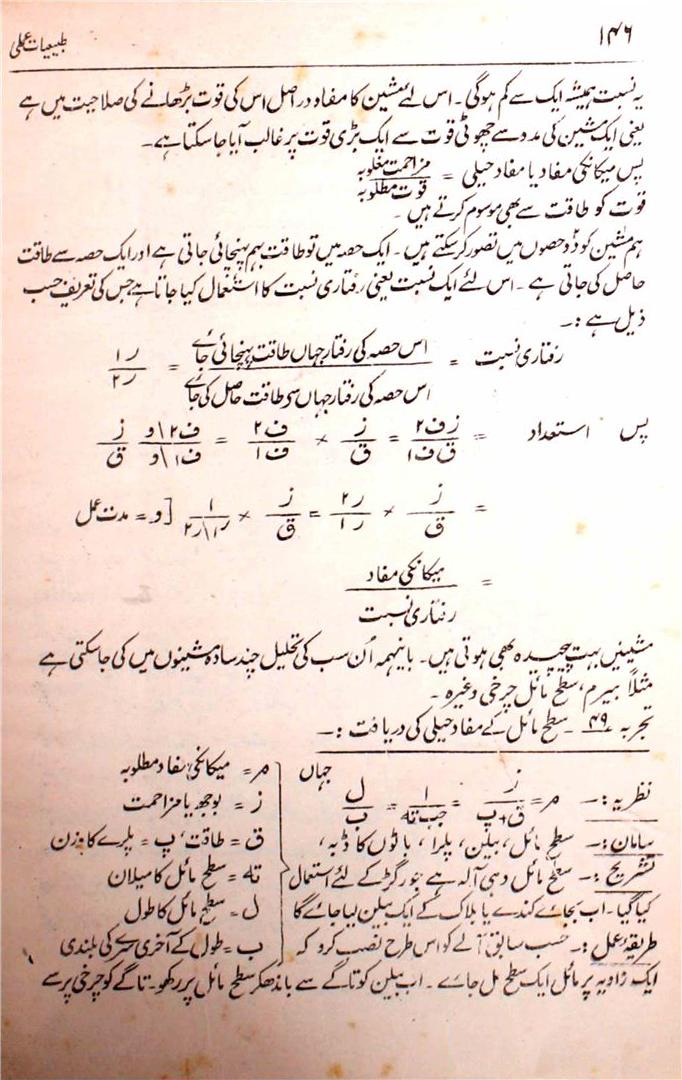 ۱۴۶ طبیعیات عملی
یہ نسبت ہمیشہ ایک سے کم ہوگی۔ اس لئے مشین کا مفاد دراصل اس کی قوت بڑھانے کی صلاحیت میں ہے
یعنی ایک مشین کی مدد سے چھوٹی قوت سے ایک بڑی قوت پر غالب آیا جا سکتا ہے۔
پس میکانکی مفاد یا مفاد حیلی = مزاحمت مغلوبہ / قوت مطلوبہ
قوت کو طاقت سے بھی موسوم کرتے ہیں۔
ہم مشین کو دو حصوں میں تصور کر سکتے ہیں۔ ایک حصہ میں تو طاقت بہم پہنچائی جاتی ہے اور ایک حصہ سے طاقت
حاصل کی جاتی ہے۔ اس لئے ایک نسبت یعنی رفتاری نسبت کا استعمال کیا جاتا ہے جس کی تعریف حسب
ذیل ہے :۔
رفتاری نسبت = اس حصہ کی رفتار جہاں طاقت پہنچائی جائے / اس حصہ کی رفتار جہاں سے طاقت حاصل کی جائے = ر۱ / ر۲
پس استعداد = ز ف۲ / ق ف۱ = ز / ق × ف۲ / ف۱ = ف۲\و / ف۱\و ز / ق
= ز / ق × ر۲ / ر۱ = ز / ق × ۱ / ر۱\ر۲ [و = مدت عمل
= میکانکی مفاد / رفتاری نسبت
مشینیں بہت پیچیدہ بھی ہوتی ہیں۔ باینہمہ اُن سب کی تحلیل چند سادہ مشینوں میں کی جا سکتی ہے
مثلاً بیرم، سطح مائل چرخی وغیرہ۔
تجربہ ۴۹۔ سطح مائل کے مفاد حیلی کی دریافت :۔
نظریہ :۔ م = ز / ق+پ = ۱ / جب تہ = ل / ب جہاں
م = میکانکی مفاد مطلوبہ
ز = بوجھ یا مزاحمت
ق = طاقت، پ = پلڑے کا وزن
تہ = سطح مائل کا میلان
ل = سطح مائل کا طول
ب = طول کے آخری سرے کی بلندی
سامان :۔ سطح مائل، بیلن، پلڑا، باٹوں کا ڈبہ،
تشریح :۔ سطح مائل وہی آلہ ہے جو رگڑ کے لئے استعمال
کیا گیا۔ اب بجائے کندے یا بلاک کے ایک بیلن لیا جائے گا
طریقۂ عمل :۔ حسب سابق آلے کو اس طرح نصب کرو کہ
ایک زاویہ پر مائل ایک سطح مل جائے۔ اب بیلن کو تاگے سے باندھ کر سطح مائل پر رکھو۔ تاگے کو چرخی پر سے